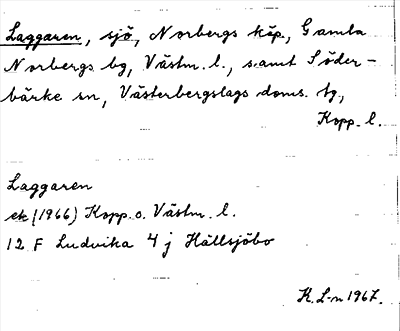 Laggaren, sjö, Norbergs köp., Gamla
Norbergs bg, Västm. l., samt Söder-
bärke sn, Västerbergslags doms. tg.,
Kopp. l.
Laggaren
ek (1966) Kopp. o. Västm. l.
12 F Ludvika 4 j Hällsjöbo
K. L-n 1967.